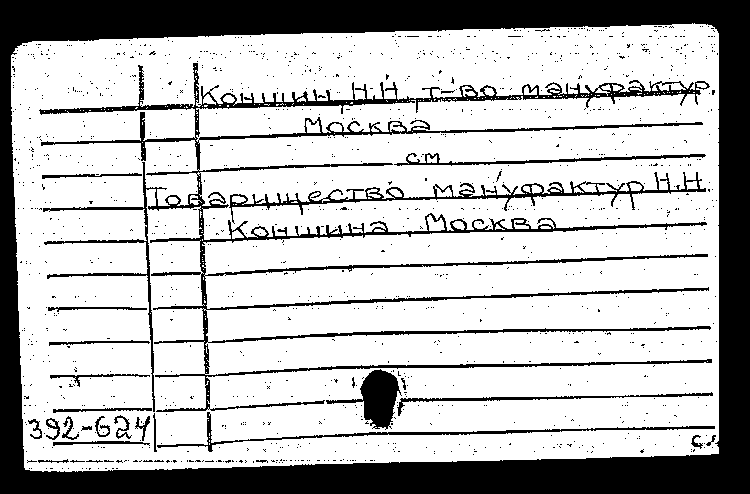 Коншин, Н.Н., т-во мануфактур.
Москва
см.
Товарищество мануфактур Н.Н.
Коншина, Москва
392-624